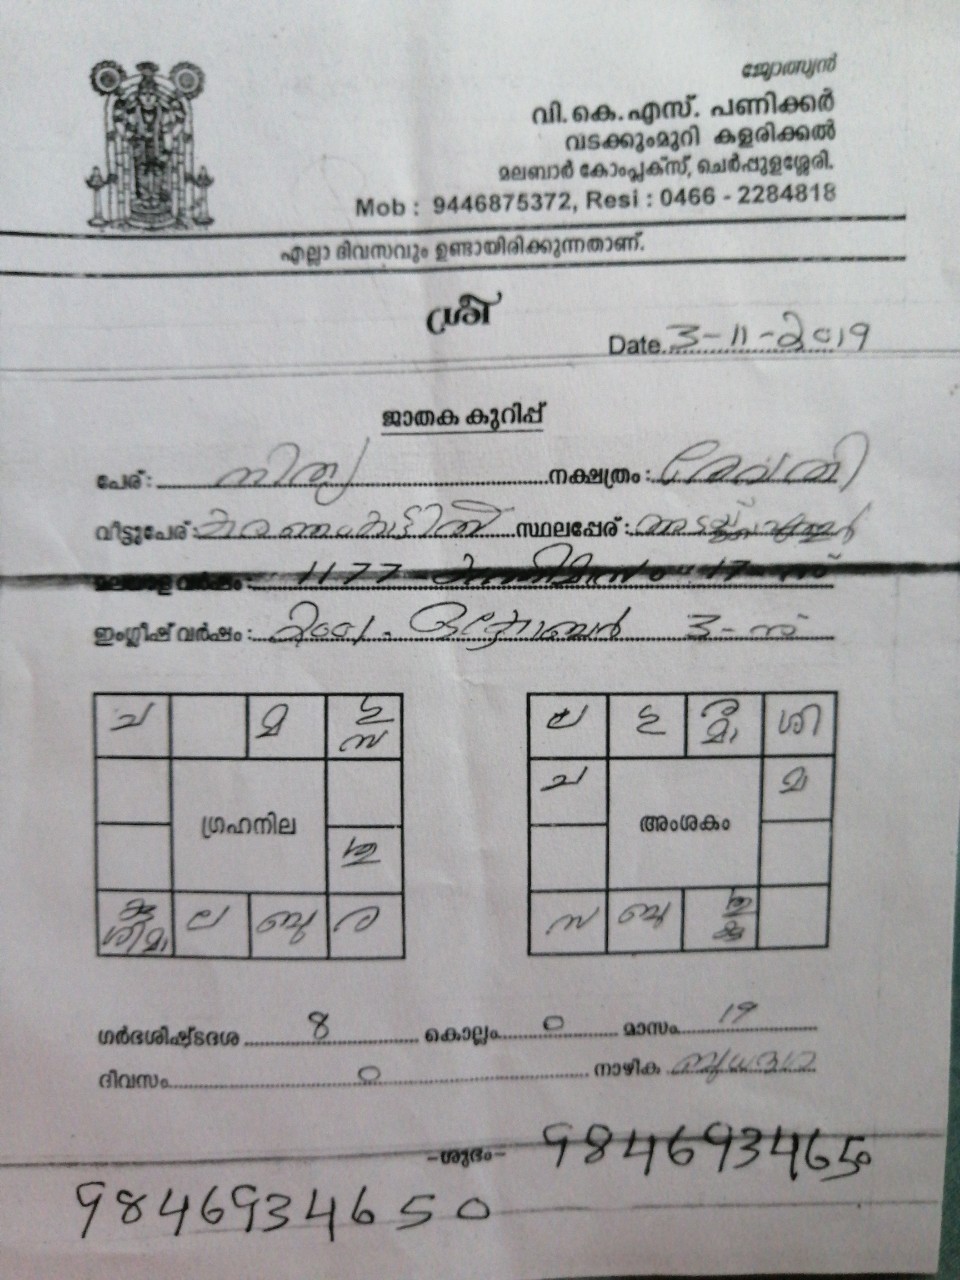 ജ്യോത്സ്യൻ
വി.കെ.എസ്. പണിക്കർ
വടക്കുംമുറി കളരിക്കൽ
മലബാർ കോംപ്ലക്സ്, ചെർപ്പുളശ്ശേരി.
Mob : 9446875372, Resi : 0466 - 2284818
എല്ലാ ദിവസവും ഉണ്ടായിരിക്കുന്നതാണ്.
ശ്രീ
Date 3-11-2019
ജാതക കുറിപ്പ്
പേര് : നിത്യ നക്ഷത്രം : രേവതി
വീട്ടുപേര് : സ്ഥലപ്പേര് :
മലയാള വർഷം : 1177 കന്നിമാസം 17-ന്
ഇംഗ്ലീഷ് വർഷം : 2001 ഒക്ടോബർ 3-ന്
ച മ
ഗ്രഹനില
ല ബു ര
ല ശി
ച മ
അംശകം
ബു
ഗർഭശിഷ്ടദശ 8 കൊല്ലം 0 മാസം 19
ദിവസം 0 നാഴിക ബുധദശ
-ശുഭം- 9846934650
9846934650